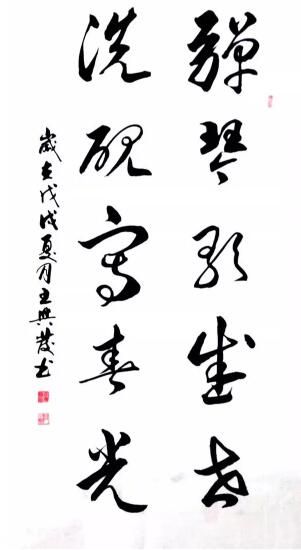 彈琴歌盛世
洗硯寫春光
歲在戊戌夏月王興發書